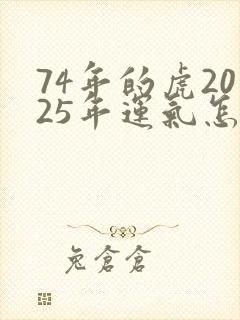 74年的虎20
25年運氣怎
兔倉倉